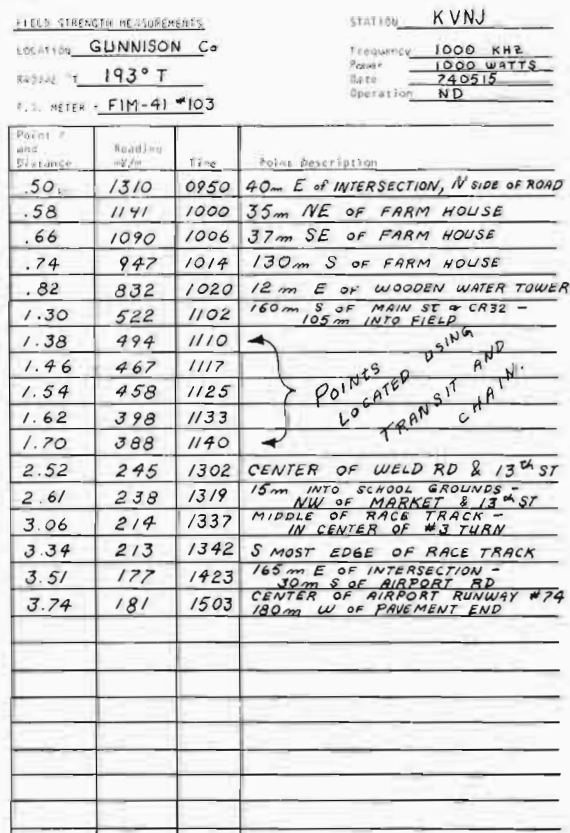 FIELD STRENGTH MEASUREMENTS
STATION KVNJ
LOCATION GUNNISON Co
Frequency 1000 KHZ
Power 1000 WATTS
RADIAL 193° T
Date 740515
Operation ND
F.S. METER - FIM-41 #103
Point # and Distance Reading mV/m Time Point Description
.50 1310 0950 40m E of INTERSECTION, N SIDE OF ROAD
.58 1141 1000 35m NE OF FARM HOUSE
.66 1090 1006 37m SE OF FARM HOUSE
.74 947 1014 130m S OF FARM HOUSE
.82 832 1020 12m E OF WOODEN WATER TOWER
1.30 522 1102 160m S OF MAIN ST & CR32 -
105m INTO FIELD
1.38 494 1110
1.46 467 1117
1.54 458 1125
1.62 398 1133
1.70 388 1140
POINTS
LOCATED USING
TRANSIT AND
CHAIN.
2.52 245 1302 CENTER OF WELD RD & 13th ST
2.61 238 1319 15m INTO SCHOOL GROUNDS -
NW OF MARKET & 13th ST
3.06 214 1337 MIDDLE OF RACE TRACK -
IN CENTER OF #3 TURN
3.34 213 1342 S MOST EDGE OF RACE TRACK
3.51 177 1423 165m E OF INTERSECTION -
30m S OF AIRPORT RD
3.74 181 1503 CENTER OF AIRPORT RUNWAY #74
180m W OF PAVEMENT END